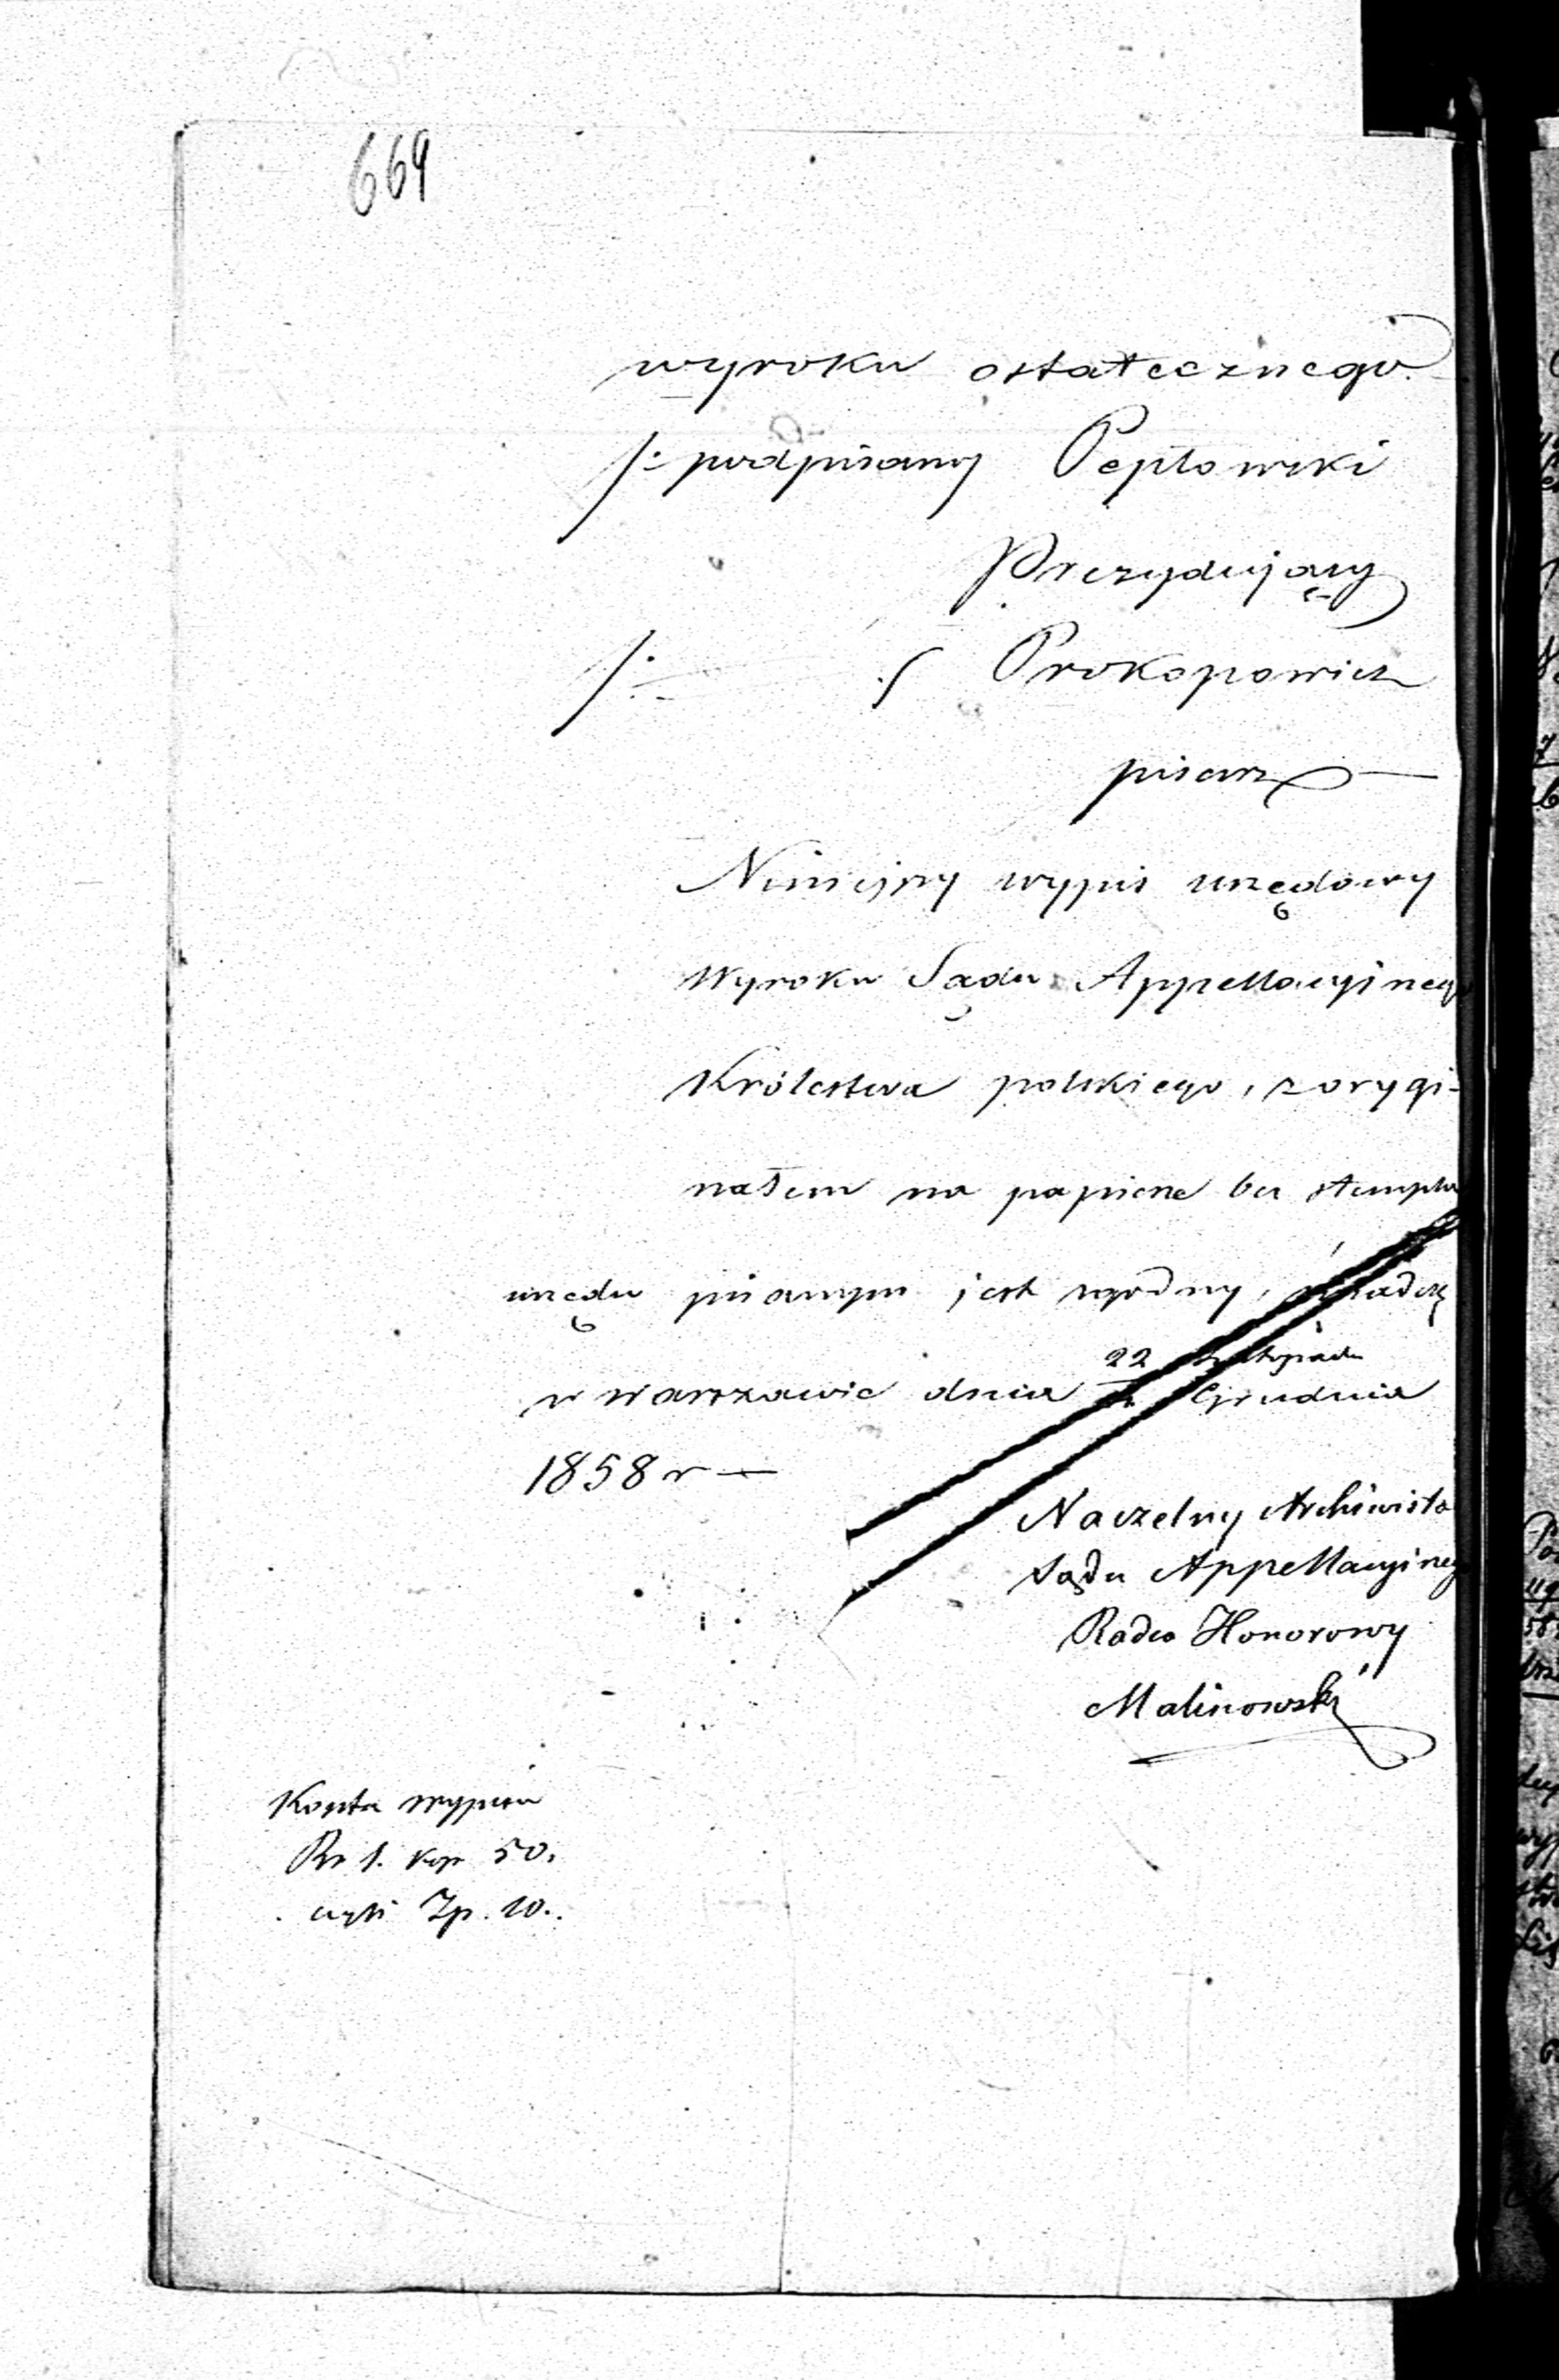 669
wyroku ostatecznego.
/: podpisany Pepłowski
Prezydujący
/: :/ Prokopowicz
pisarz
Niniejszy wypis urzędowy
Wyroku Sądu Appellacyinego
Królestwa polskiego, z orygi-
nałem na papierze bez stempla
urzędu pisanym jest zgodny, świadczę
w Warszawie dnia 22 Listopada Grudnia
1858 r —
Naczelny Archiwista
Sądu Appellacyinego
Radca Honorowy
Malinowski
Koszta wypisu
Rs 1. kop 50.
czyli Zp. 10.